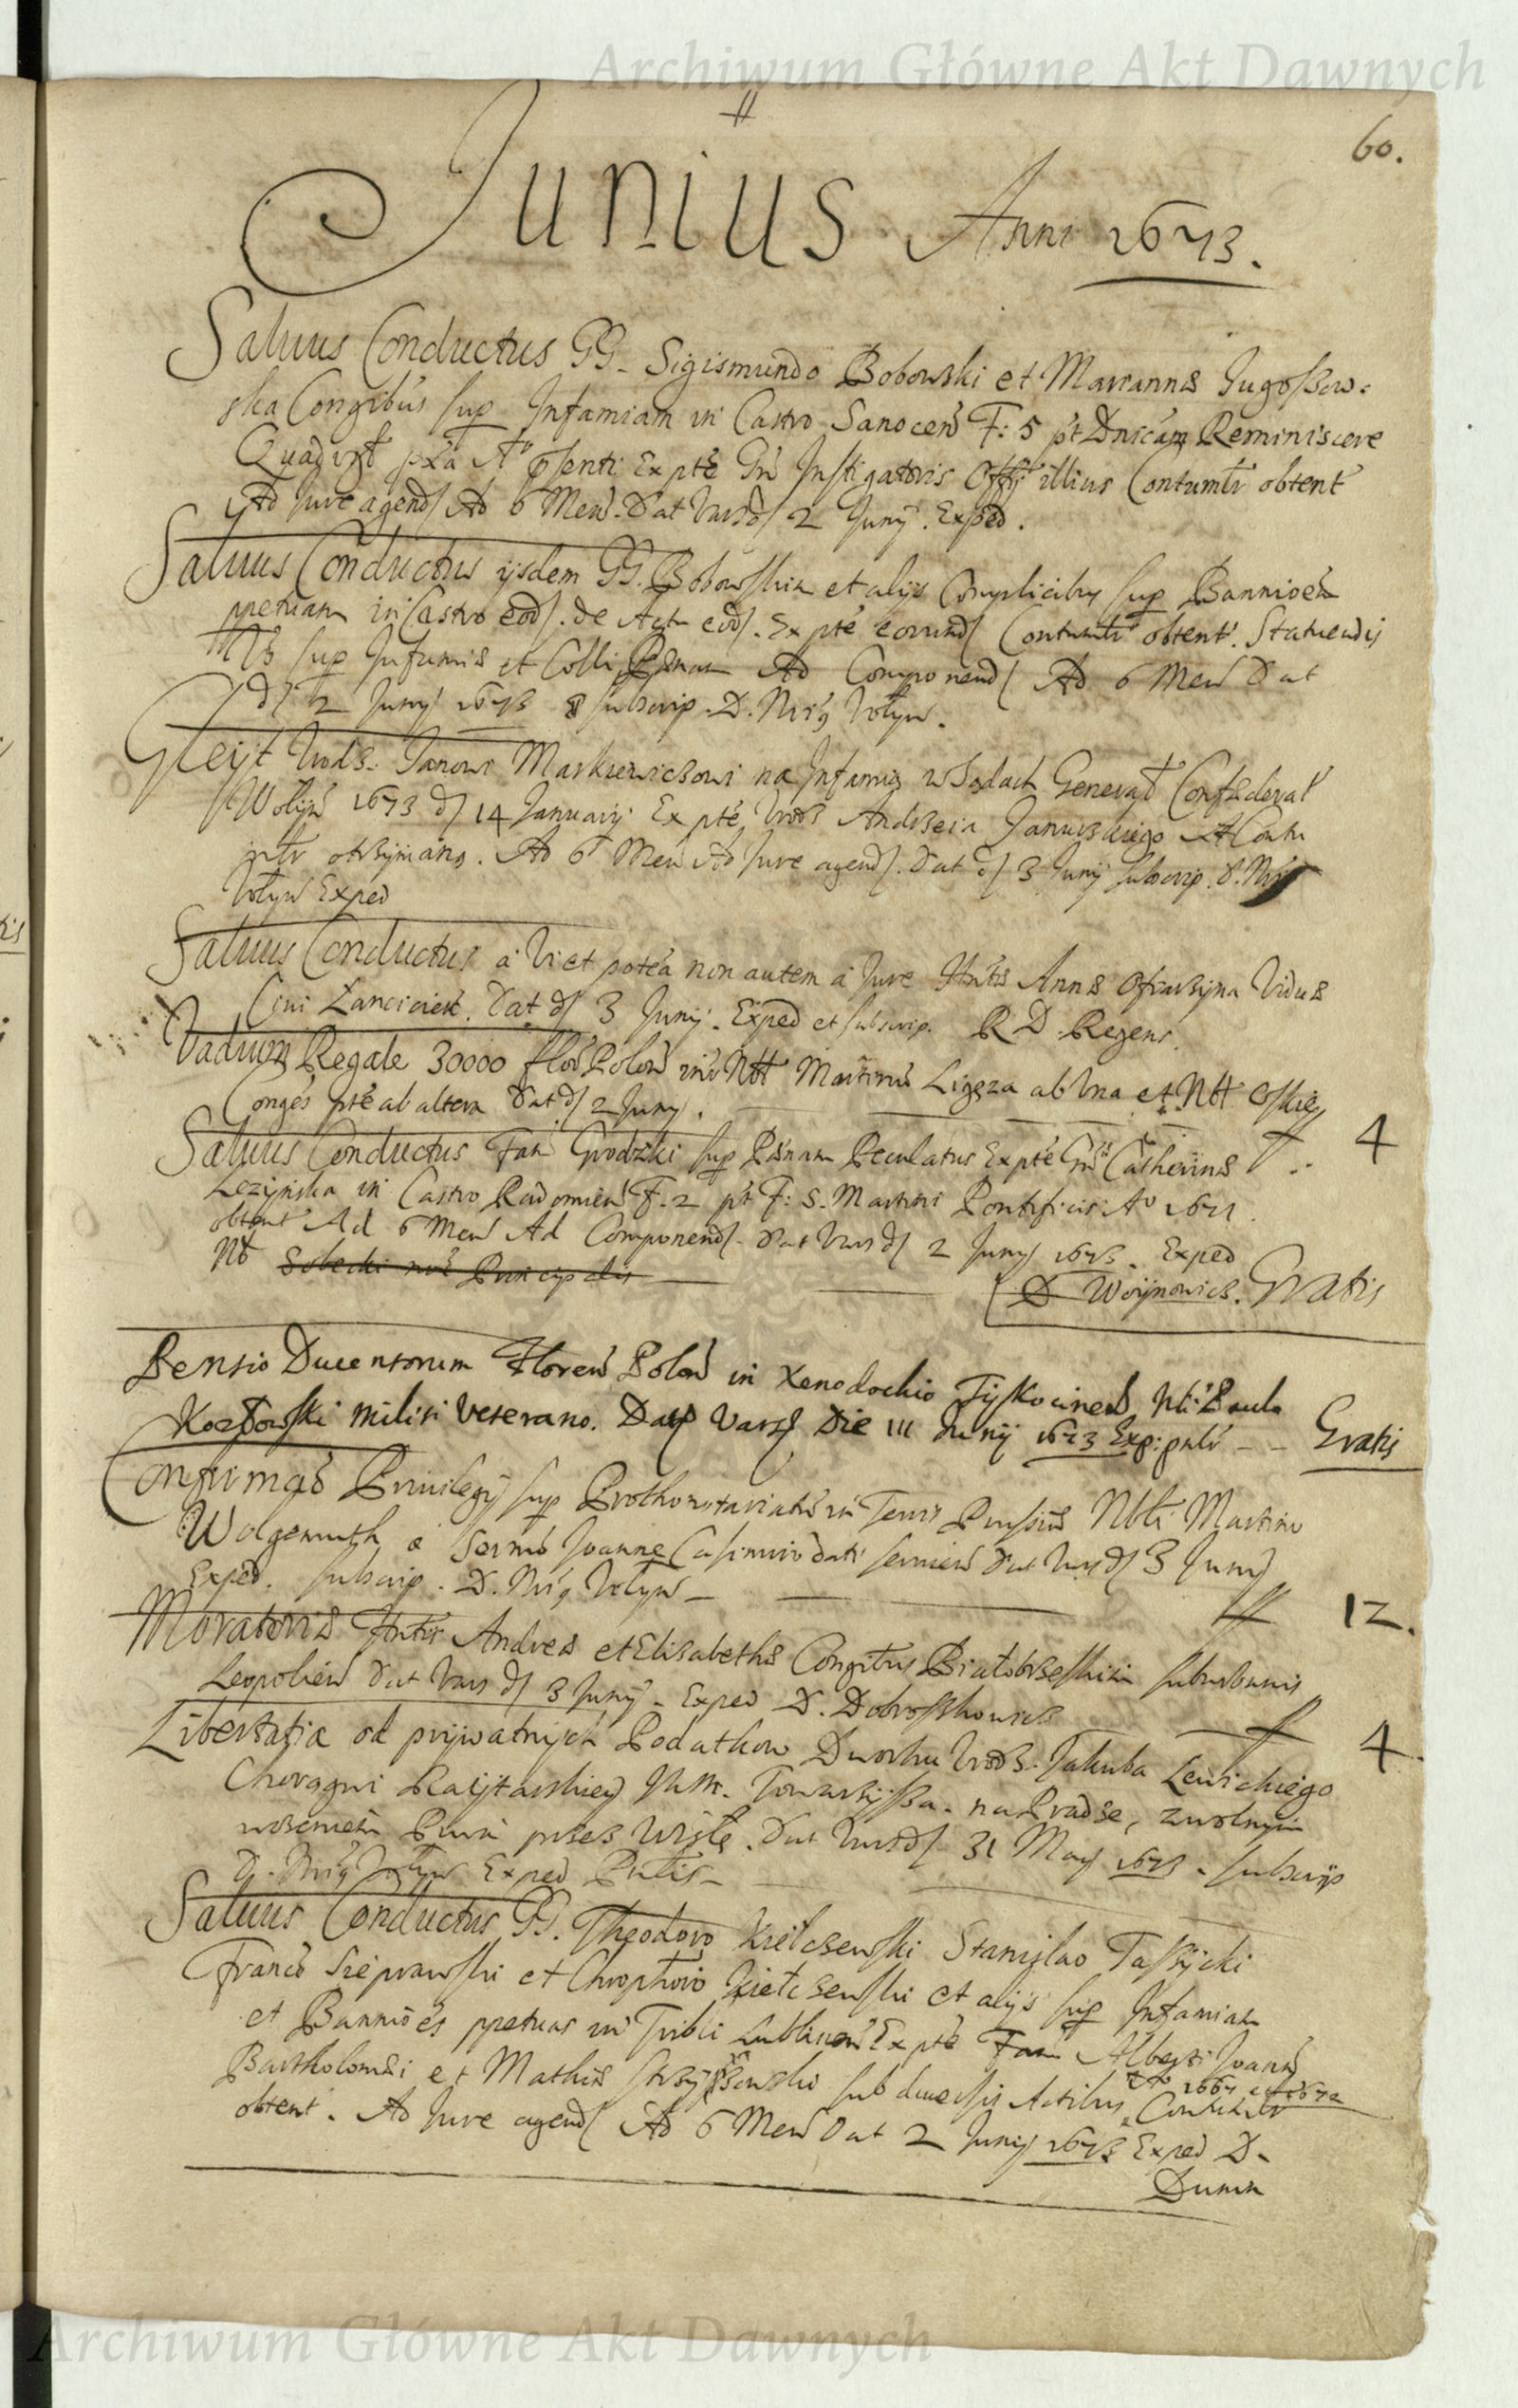 Archiwum Główne Akt Dawnych
60.
Junius Anni 1673.
Salvus Conductus GG. Sigismundo Bobowski et Mariannæ Jugossow-
ska Congibus sup Infamiam in Castro Sanocen F: 5 pt Dnicam Reminiscere
Quadrgl pxa A° psenti Ex pte Instigatoris Offy illius Contumtr obtent
Ad Jure agend Ad 6 Men. Dat Vars d 2 Juny. Exped.
Salvus Conductus ijsdem GG. Bobowskim et alijs Complicibus sup Bannioem
ppetuam in Castro eod. de Actu eod. Ex pte eorund Contumtr obtent. Statuendis
sup Infamiæ et Colli Pænam Ad Componend Ad 6 Men Dat
d 2 Juny 1673 subscrip. D. Wolyn.
Gleyt Urodz. Janowi Markiewiczowi na Infamią w Sądach Generał Confæderal
Wołyn 1673 d 14 January Ex pte Urodz Andrzeia Januszkiego Contu
mtr otrzymaną. Ad 6 Men Ad Jure agend. Dat d 3 Juny subscrip. D.
Wołyn Exped
Salvus Conductus a Vi et potea non autem a Jure Annæ Viduæ
Civi Lancicien. Dat d 3 Juny. Exped et subscrip. R. D. Regens.
Vadium Regale 30000 flor Polon int Nbl Martinu Ligęza ab Una et Nbl
Conges pte ab altera Dat d 2 Juny.
4
Salvus Conductus Fam Grodzki sup Pænam Peculatus Ex pte Catherinæ
Lezynska in Castro Radomien F. 2 pt F: S. Martini Pontificis A° 1671.
obtent Ad 6 Men Ad Componend. Dat Vars d 2 Juny 1673. Exped
Nb Sobecki Principalis
D Woynowicz. Gratis
Pensio Ducentorum Floren Polon in Xenodochio Tykocinen Nbli Paulo
Kozłowski militi Veterano. Dat Vars Die III Junij 1673 Exp: - - Gratis
Confirmao Privilegij sup Prothonotariatu in Terris Prussiæ Nbli Martino
Wolgemuth a Sermo Joanne Casimiro dati servien Dat Vars d 3 Juny
Exped. subscrip. D. Wolyn -
12.
Moratoriæ Andreæ et Elisabethæ Congibus Białobrzeskim suburbanis
Leopolien Dat Vars d 3 Juny. Exped D. Dobroszkowicz
4.
Libertatia od prywatnych Podatkow Dworku Urodz. Jakuba Lewickiego
Choragwi Raytarskiey Towarzyssa. na Pradze, zwolnym
wozeniem Piwa przez Wisłę. Dat Vars d 31 May 1673. subscrip
D. Wolyn Exped
Salvus Conductus GG. Theodoro Kiełczewski Stanislao Tassycki
Franco Siepravski et Chrophoro Kiełczewski et alijs sup Infamiam
et Banniões ppetuas in Tribli Lublinen Ex pte Fam Alberti Joan
Bartholomæi et Mathiæ sub diversis Actibus A° 1667 et 1672 Contumtr
obtent. Ad Jure agend Ad 6 Men Dat 2 Juny 1673 Exped D.
Dunin
Archiwum Główne Akt Dawnych